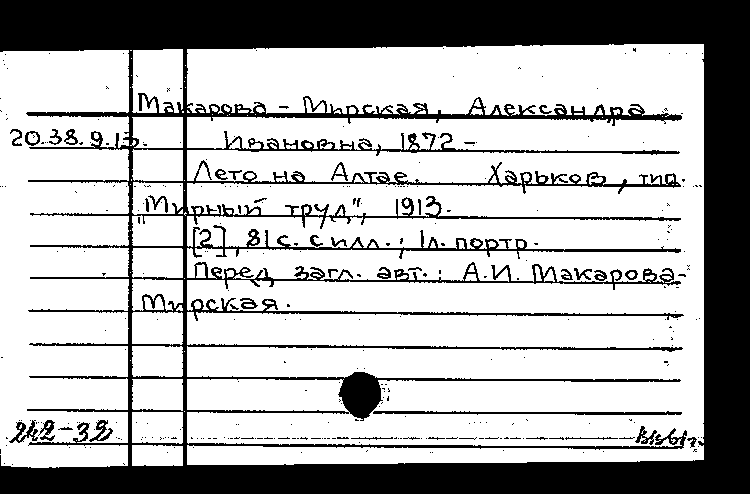 Макарова - Мирская, Александра
20.38.9.13. Ивановна, 1872 -
Лето на Алтае. Харьков, тип.
„Мирный труд", 1913.
[2], 81 с. с илл.; 1 л. портр.
Перед загл. авт.: А.И. Макарова-
Мирская.
242-32